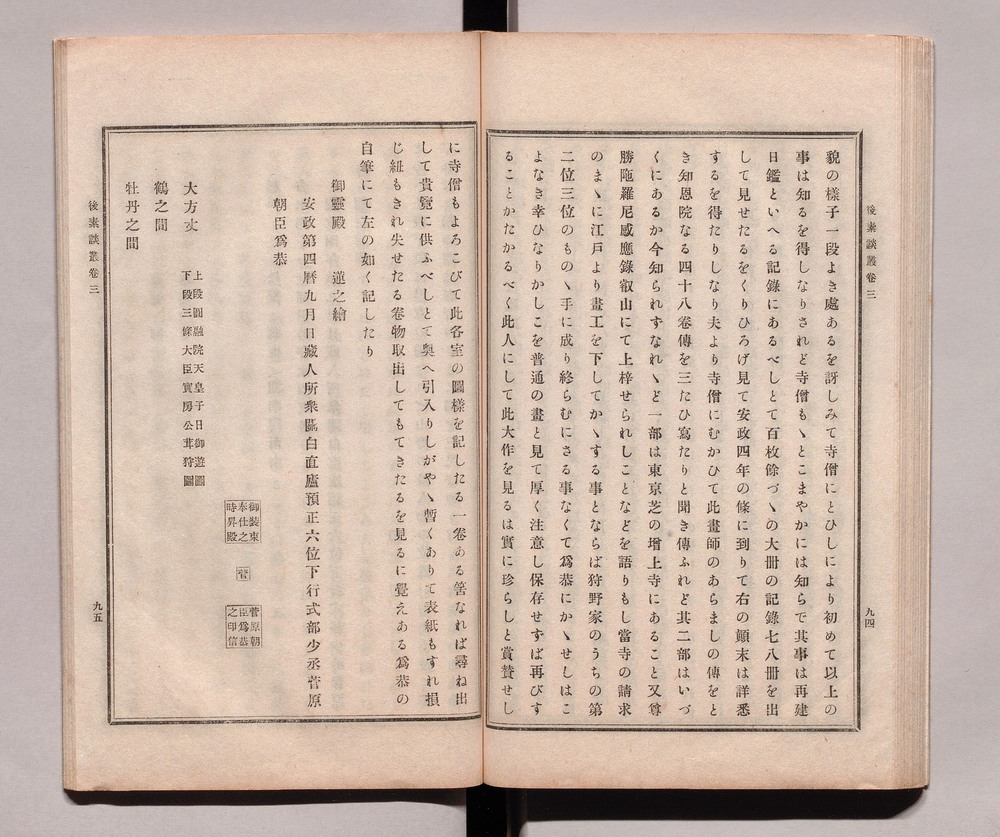 後素談叢卷三
九四
貌の樣子一段よき處あるを訝しみて寺僧にとひしにより初めて以上の
事は知るを得しなりされど寺僧もヽとこまやかには知らで其事は再建
日鑑といへる記錄にあるべしとて百枚餘づヽの大冊の記錄七八冊を出
して見せたるをくりひろげ見て安政四年の條に到りて右の顚末は詳悉
するを得たりしなり夫より寺僧にむかひて此畫師のあらましの傳をと
き知恩院なる四十八卷傳を三たひ寫たりと聞き傳ふれど其二部はいづ
くにあるか今知られずなれヽど一部は東京芝の增上寺にあること又尊
勝陁羅尼感應錄叡山にて上梓せられしことなどを語りもし當寺の請求
のまヽに江戸より畫工を下してかヽする事とならば狩野家のうちの第
二位三位のものヽ手に成り終らむにさる事なくて爲恭にかヽせしはこ
よなき幸ひなりかしこを普通の畫と見て厚く注意し保存せずば再びす
ることかたかるべく此人にして此大作を見るは實に珍らしと賞賛せし
に寺僧もよろこびて此各室の圖樣を記したる一卷ある筈なれば尋ね出
して貴覽に供ふべしとて奧へ引入りしがやヽ暫くありて表紙もすれ損
じ紐もきれ失せたる卷物取出してもてきたるを見るに覺えある爲恭の
自筆にて左の如く記したり
御靈殿 蓮之繪
安政第四曆九月日藏人所衆關白直廬預正六位下行式部少丞菅原
朝臣爲恭
御裝束
奉仕之
時昇殿
菅
菅原朝
臣爲恭
之印信
大方丈
上段圓融院天皇子日御遊圖
下段三條大臣實房公茸狩圖
鶴之間
牡丹之間
後素談叢卷三
九五